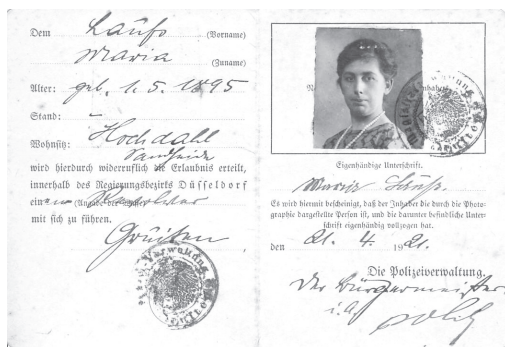 Dem Laufs (Vorname)
Maria (Zuname)
Alter: geb. 1. 5. 1895
Stand: —
Wohnsitz: Hochdahl
wird hierdurch widerruflich die Erlaubnis erteilt,
innerhalb des Regierungsbezirks Düsseldorf
einen (Angabe der Waffe) Revolver
mit sich zu führen.
Gruiten
Eigenhändige Unterschrift.
Maria
Es wird hiermit bescheinigt, daß der Inhaber die durch die Photo-
graphie dargestellte Person ist, und die darunter befindliche Unter-
schrift eigenhändig vollzogen hat.
den 21. 4. 1921.
Die Polizeiverwaltung.
Der Bürgermeister